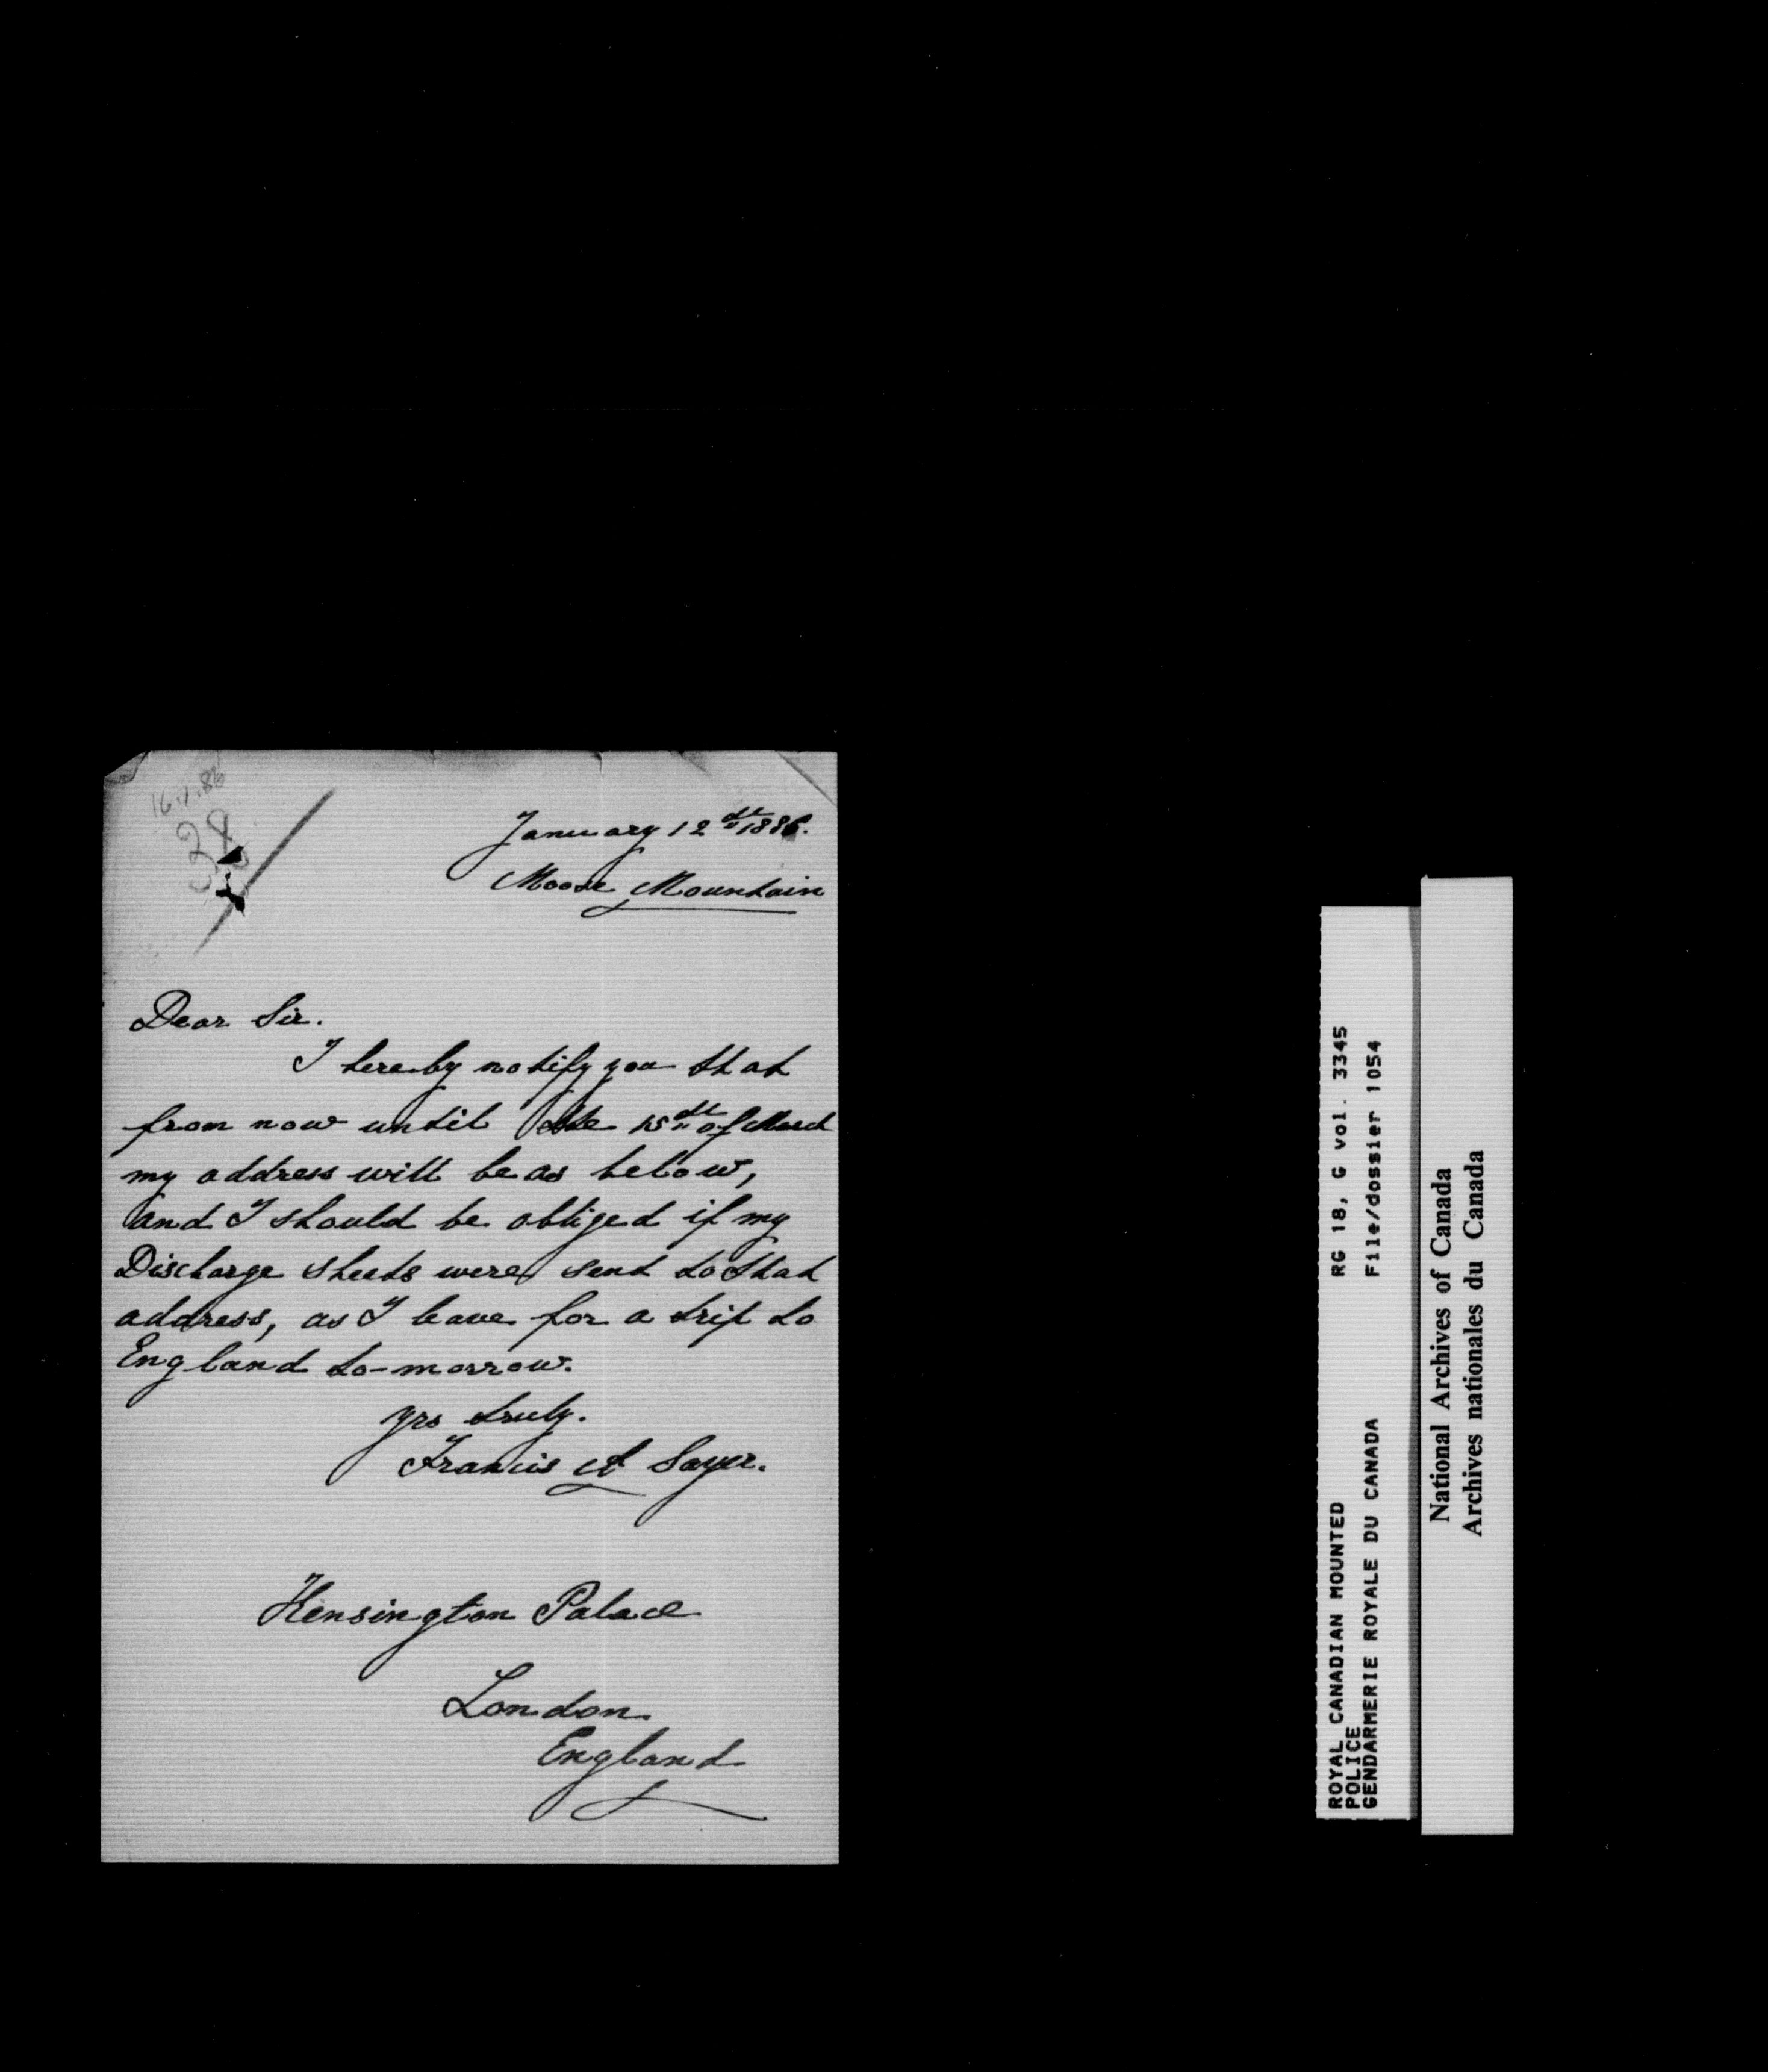 16.1.86
28
January 12th 1886.
Moose Mountain
Dear Sir.
I hereby notify you that
from now until the 15th of March
my address will be as below,
and I should be obliged if my
Discharge sheets were sent to that
address, as I leave for a trip to
England to-morrow.
yrs truly.
Francis A Sayer.
Kensington Palace
London
England
ROYAL CANADIAN MOUNTED
POLICE
GENDARMERIE ROYALE DU CANADA
RG 18, G vol. 3345
File/dossier 1054
National Archives of Canada
Archives nationales du Canada